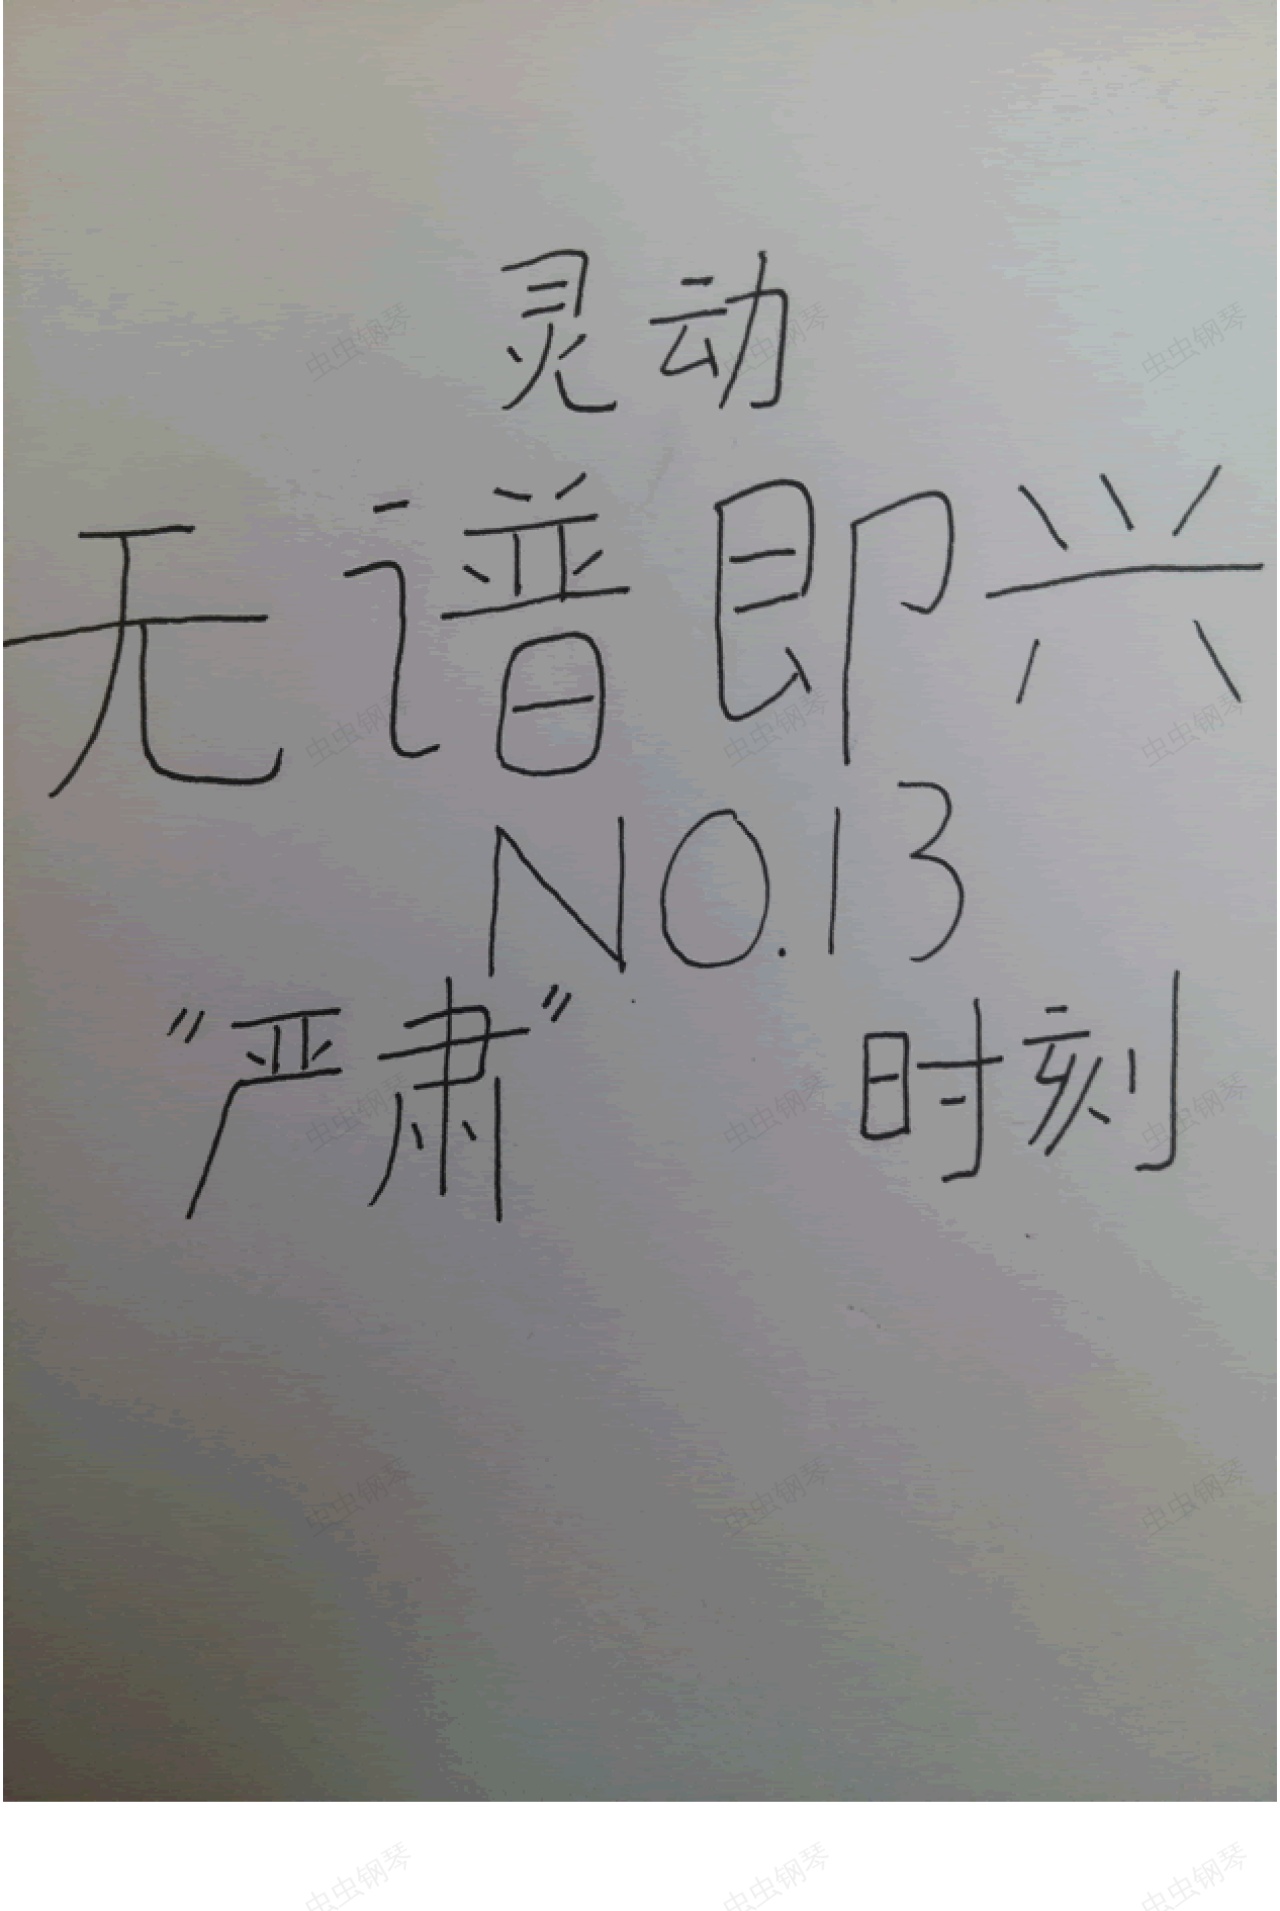 灵动
无谱即兴
NO.13
"严肃" 时刻
虫虫钢琴 虫虫钢琴
虫虫钢琴 虫虫钢琴 虫虫钢琴
虫虫钢琴 虫虫钢琴 虫虫钢琴
虫虫钢琴 虫虫钢琴 虫虫钢琴
虫虫钢琴 虫虫钢琴 虫虫钢琴